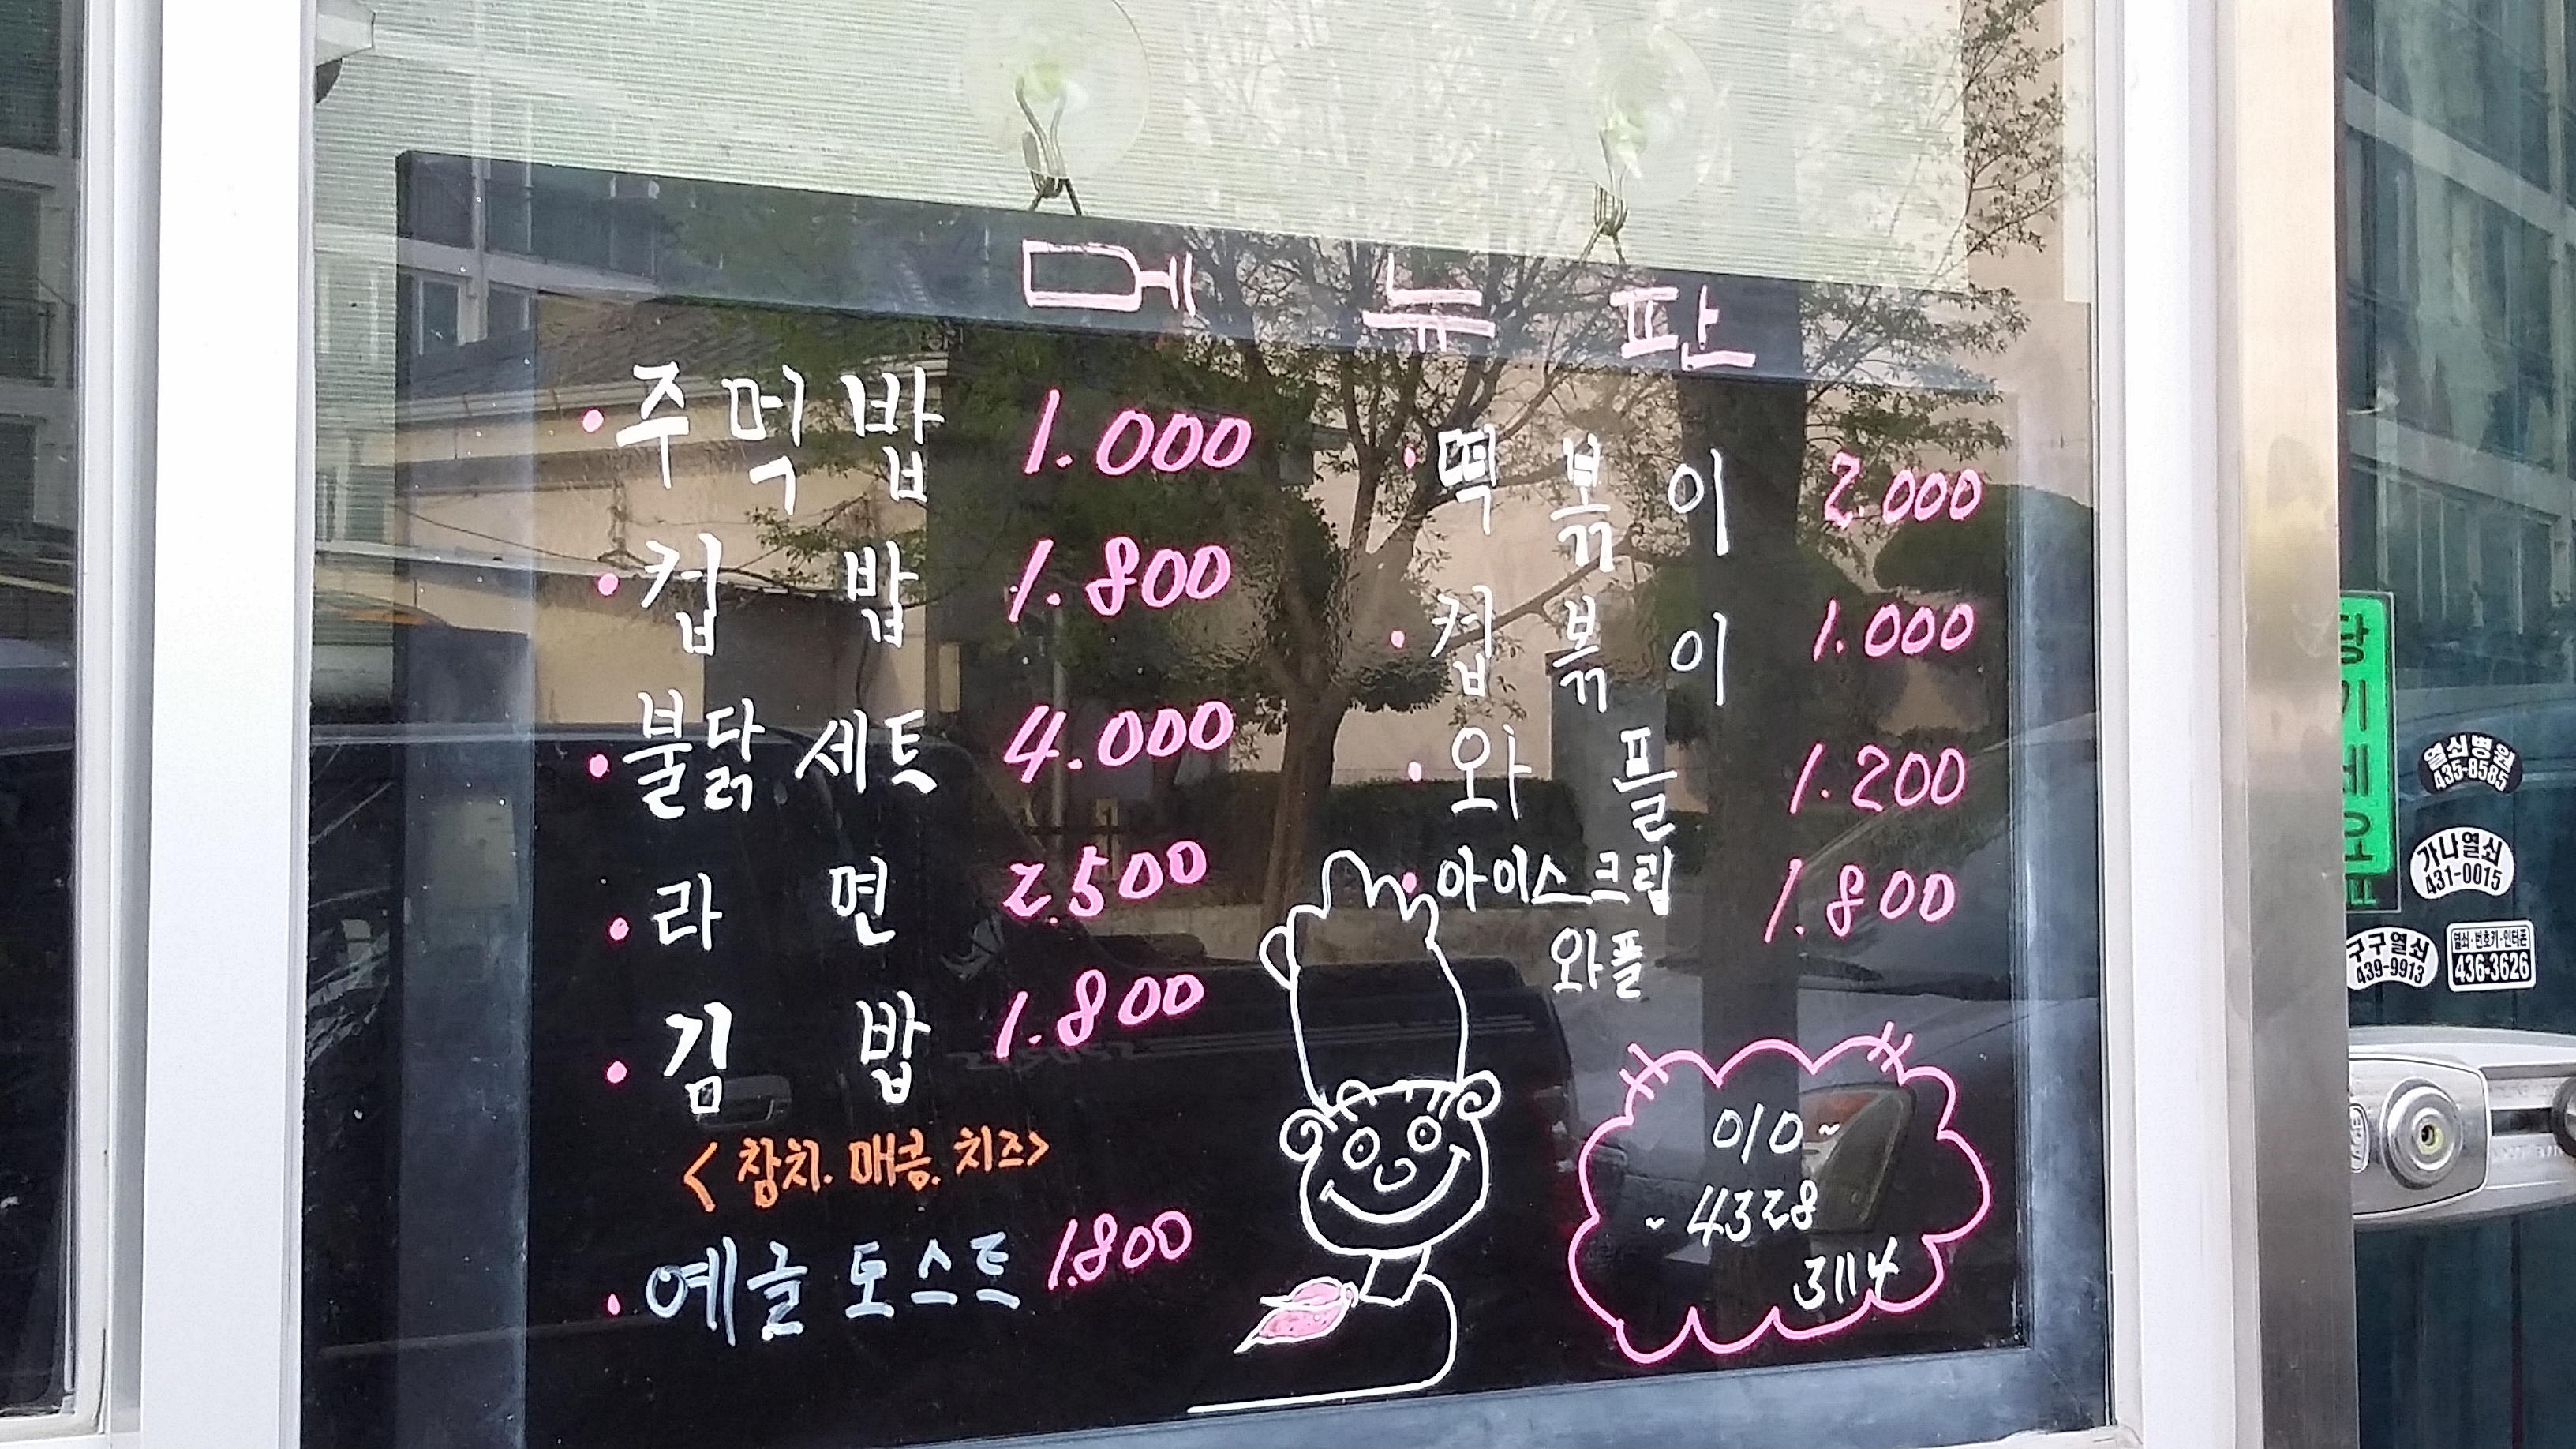 메 뉴 판
· 주먹밥 1.000
· 컵 밥 1.800
· 불닭 세트 4.000
· 라 면 2.500
· 김 밥 1.800
<참치. 매콤. 치즈>
· 에글 토스트 1.800
· 떡 볶 이 2.000
· 컵 볶 이 1.000
· 와 플 1.200
· 아이스크림 1.800
와플
010~
~4328
3114
당기세요
열쇠병원
435-8585
가나열쇠
431-0015
구구열쇠
439-9913
열쇠·번호키·인터폰
436-3626